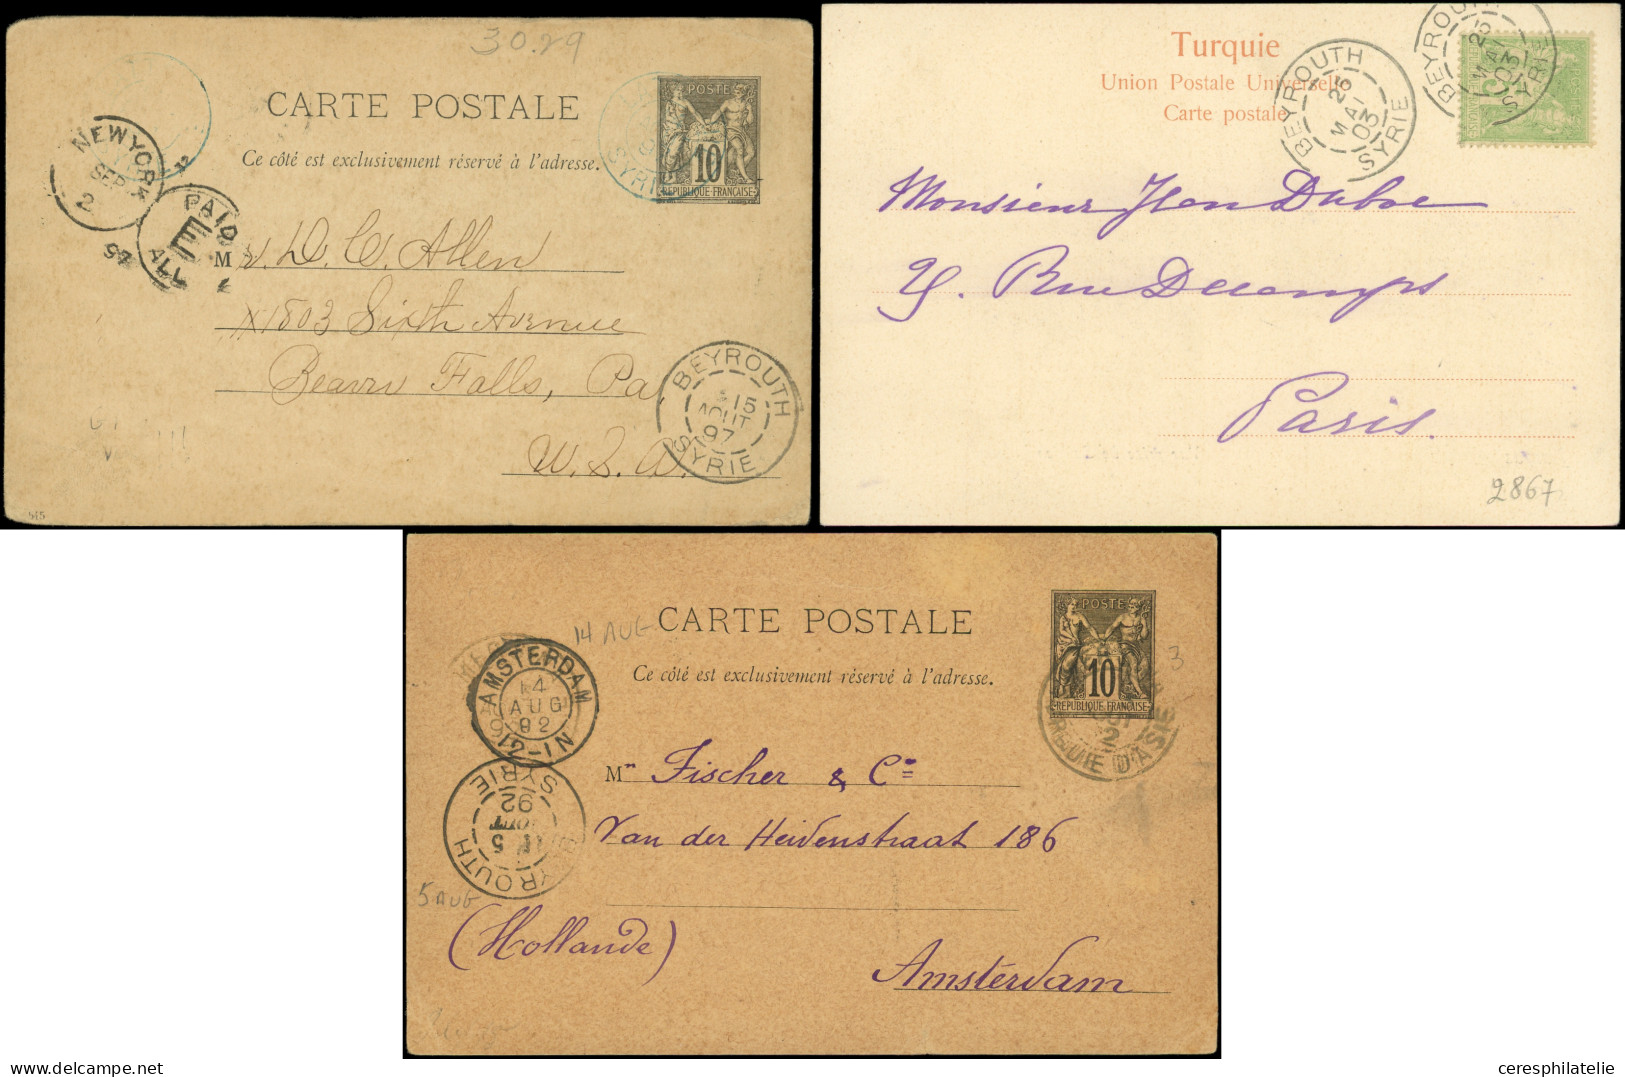 30.29
CARTE POSTALE
Ce côté est exclusivement réservé à l'adresse.
POSTE
10
REPUBLIQUE FRANÇAISE
SYRIE
NEW YORK
SEP
2
97
PAID
E
ALL
M
r. D. C. Allen
1803 Sixth Avenue
Beaver Falls, Pa,
U. S. A.
BEYROUTH
15
AOUT
97
SYRIE
515
Turquie
Union Postale Universelle
Carte postale
BEYROUTH
25
MAI
03
SYRIE
BEYROUTH
25
MAI
03
SYRIE
Monsieur Jean Duboc
Rue Decamps
Paris.
2867
CARTE POSTALE
Ce côté est exclusivement réservé à l'adresse.
POSTE
10
REPUBLIQUE FRANÇAISE
TURQUIE D'ASIE
3
14 AUG
AMSTERDAM
14
AUG
92
12-1N
BEYROUTH
5
AOUT
92
SYRIE
5 AUG
M
rs Fischer & Cie
Van der Heidenstraat 186
(Hollande)
Amsterdam
www.delcampe.net
ceresphilatelie